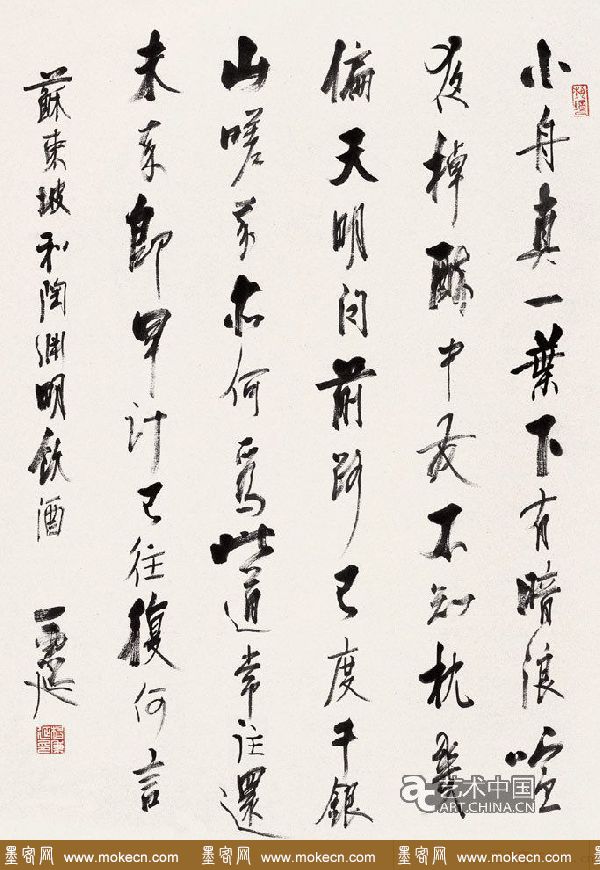 小舟真一葉下有暗浪喧
夜棹醉中發不知枕幾
偏天明问前路已度千銀
山嗟我亦何為此道常往還
未来即早计已往復何言
蘇東坡和陶渊明飲酒
艺术中国
ART.CHINA.CN
墨客网 www.mokecn.com 墨客网 www.mokecn.com 墨客网 www.mokecn.com